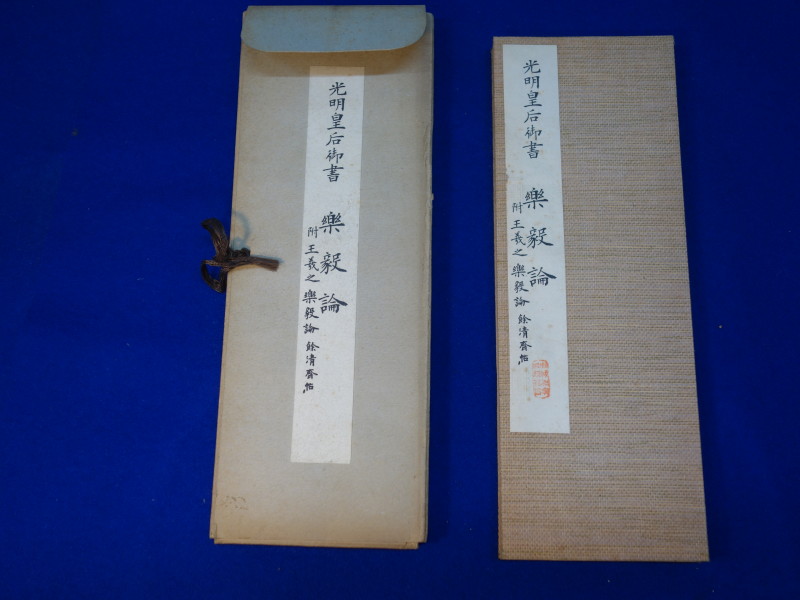 光明皇后御書 樂毅論
附 王羲之 樂毅論 餘清齋帖
光明皇后御書 樂毅論
附 王羲之 樂毅論 餘清齋帖